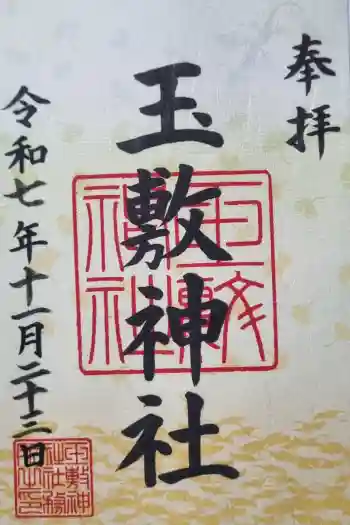 奉拝
玉敷神社
令和七年十一月二十三日
玉敷神社
玉敷神社社務之印